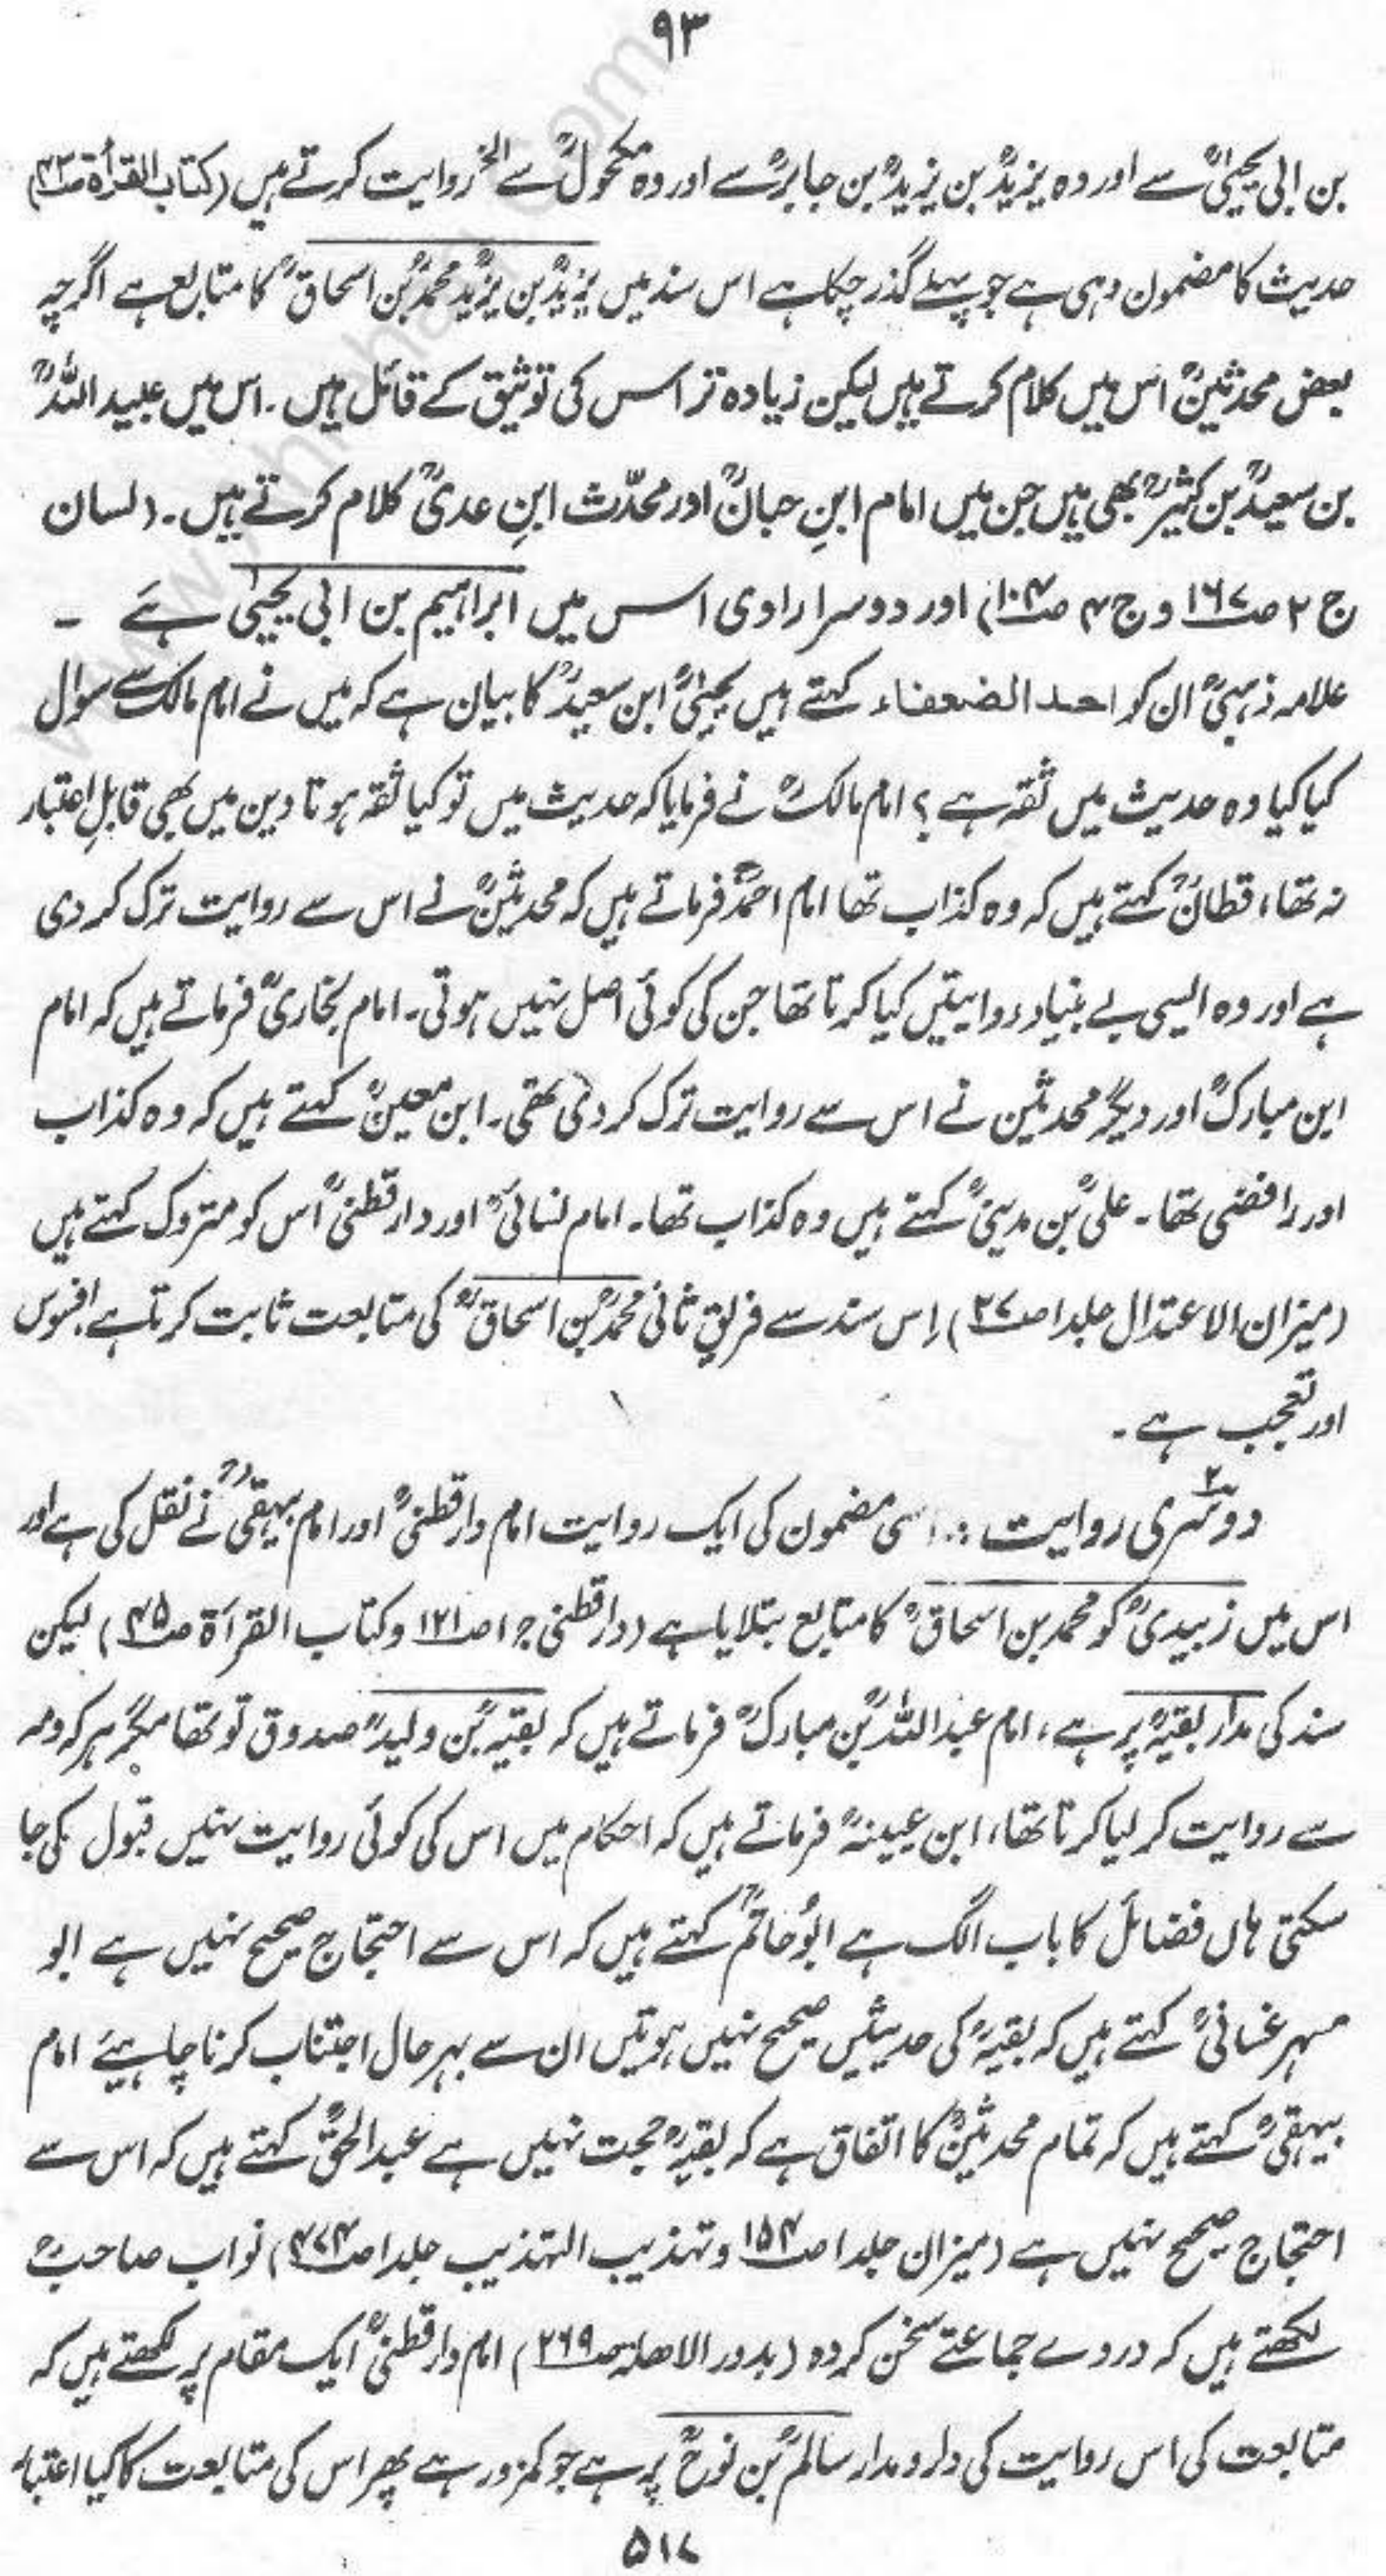 ۹۳
بن ابی یحییٰؒ سے اور وہ یزیدؒ بن یزیدؒ بن جابرؒ سے اور وہ مکحولؒ سے الخ روایت کرتے ہیں (کتاب القرأۃ ص۴۲)
حدیث کا مضمون وہی ہے جو پہلے گذر چکا ہے اس سند میں یزیدؒ بن یزیدؒ محمدؒ بن اسحاقؒ کا متابع ہے اگرچہ
بعض محدثینؒ اس میں کلام کرتے ہیں لیکن زیادہ تر اس کی توثیق کے قائل ہیں۔ اس میں عبید اللہؒ
بن سعیدؒ بن کثیرؒ بھی ہیں جن میں امام ابنِ حبانؒ اور محدّث ابنِ عدیؒ کلام کرتے ہیں۔ (لسان
ج ۲ ص۱۶۷ و ج ۴ ص۱۰۴) اور دوسرا راوی اس میں ابراہیم بن ابی یحییٰ ہے ۔
علامہ ذہبیؒ ان کو احد الضعفاء کہتے ہیں یحییٰؒ ابن سعیدؒ کا بیان ہے کہ میں نے امام مالکؒ سے سوال
کیا کیا وہ حدیث میں ثقہ ہے ؟ امام مالکؒ نے فرمایا کہ حدیث میں تو کیا ثقہ ہوتا دین میں بھی قابلِ اعتبار
نہ تھا، قطانؒ کہتے ہیں کہ وہ کذاب تھا امام احمدؒ فرماتے ہیں کہ محدثینؒ نے اس سے روایت ترک کر دی
ہے اور وہ ایسی بے بنیاد روایتیں کیا کرتا تھا جن کی کوئی اصل نہیں ہوتی۔ امام بخاریؒ فرماتے ہیں کہ امام
ابن مبارکؒ اور دیگر محدثین نے اس سے روایت ترک کر دی تھی۔ ابن معینؒ کہتے ہیں کہ وہ کذاب
اور رافضی تھا۔ علیؒ بن مدینیؒ کہتے ہیں وہ کذاب تھا۔ امام نسائیؒ اور دارقطنیؒ اس کو متروک کہتے ہیں
(میزان الاعتدال جلد ۱ ص۲۷) اِس سند سے فریق ثانی محمدؒ بن اسحاقؒ کی متابعت ثابت کرتا ہے افسوس
اور تعجب ہے۔
دوسری روایت :۔ اسی مضمون کی ایک روایت امام دارقطنیؒ اور امام بیہقیؒ نے نقل کی ہے اور
اس میں زبیدیؒ کو محمد بن اسحاقؒ کا متابع بتلایا ہے (دارقطنی ج ۱ ص۱۲۱ و کتاب القرآۃ ص۴۵) لیکن
سند کی مدار بقیہؒ پر ہے، امام عبد اللہؒ بن مبارکؒ فرماتے ہیں کہ بقیہؒ بن ولیدؒ صدوق تو تھا مگر ہر کہ ومہ
سے روایت کر لیا کرتا تھا، ابن عیینہؒ فرماتے ہیں کہ احکام میں اس کی کوئی روایت نہیں قبول کی جا
سکتی ہاں فضائل کا باب الگ ہے ابو حاتمؒ کہتے ہیں کہ اس سے احتجاج صحیح نہیں ہے ابو
مسہر غسانیؒ کہتے ہیں کہ بقیہؒ کی حدیثیں صحیح نہیں ہوتیں ان سے بہرحال اجتناب کرنا چاہیئے امام
بیہقیؒ کہتے ہیں کہ تمام محدثینؒ کا اتفاق ہے کہ بقیہؒ حجت نہیں ہے عبد الحقؒ کہتے ہیں کہ اس سے
احتجاج صحیح نہیں ہے (میزان جلد ۱ ص۱۵۴ و تہذیب التہذیب جلد ۱ ص۴۷۴) نواب صاحبؒ
لکھتے ہیں کہ در وے جماعتے سخن کردہ (بدور الاھلہ ص۲۶۹) امام دارقطنیؒ ایک مقام پر لکھتے ہیں کہ
متابعت کی اس روایت کی دار و مدار سالمؒ بن نوحؒ پر ہے جو کمزور ہے پھر اس کی متابعت کا کیا اعتبار
۵۱۷